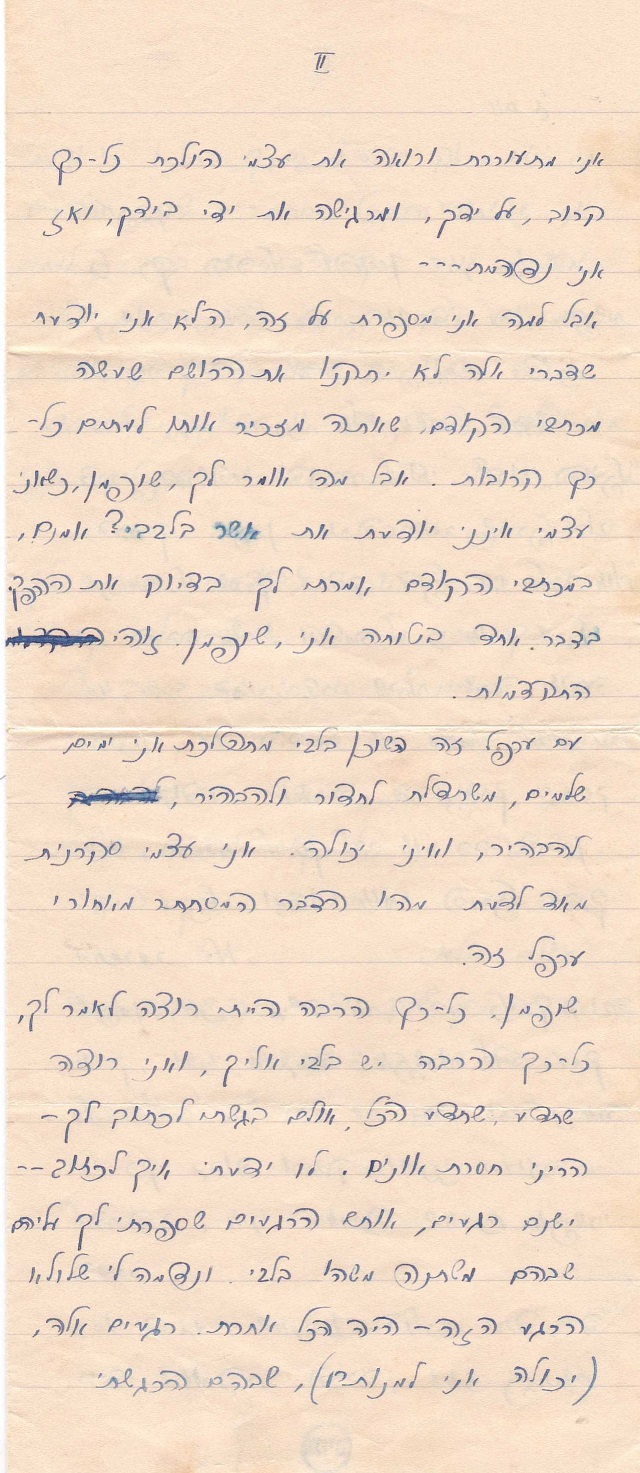 II
אני מתעוררת ורואה את עצמי הולכת כל-כך
קרוב, על ידך, ומרגישה את ידי בידך, ואז
אני נפחמת---
אבל למה אני מספרת על זה, הלא אני יודעת
שדברי אלה לא יתקנו את הרושם שעשה
מכתבי הקודם, שאתה מזכיר אותו לעתים כל-
כך קרובות. אבל מה אומר לך, שופמן, כשאני
עצמי אינני יודעת את אשר בלבבי? אמנם,
במכתבי הקודם אמרתי לך בדיוק את ההפך
בדבר אחד בטוחה אני, שופמן. זוהי
התקדמות.
עם ערפל זה השוכן בלבי מתהלכת אני ימים
שלמים, משתדלת לחדור ולהבהיר,
להבהיר, ואיני יכולה. אני עצמי סקרנית
מאד לדעת מהו הדבר המסתתר מאחורי
ערפל זה.
שופמן, כל-כך הרבה הייתי רוצה לאמר לך,
כל-כך הרבה יש בלבי אליך, ואני רוצה
שתדע, שתדע הכל, אולם בגשתי לכתוב לך –
הריני חסרת אונים. לו ידעתי איך לכתוב--
ישנם רגעים, אותם הרגעים שספרתי לך עליהם
שבהם משתנה משהו בלבי. ונדמה לי שלולא
הרגע הזה – היה הכל אחרת. רגעים אלה,
(יכולה אני למנותם), שבהם הרגשתי